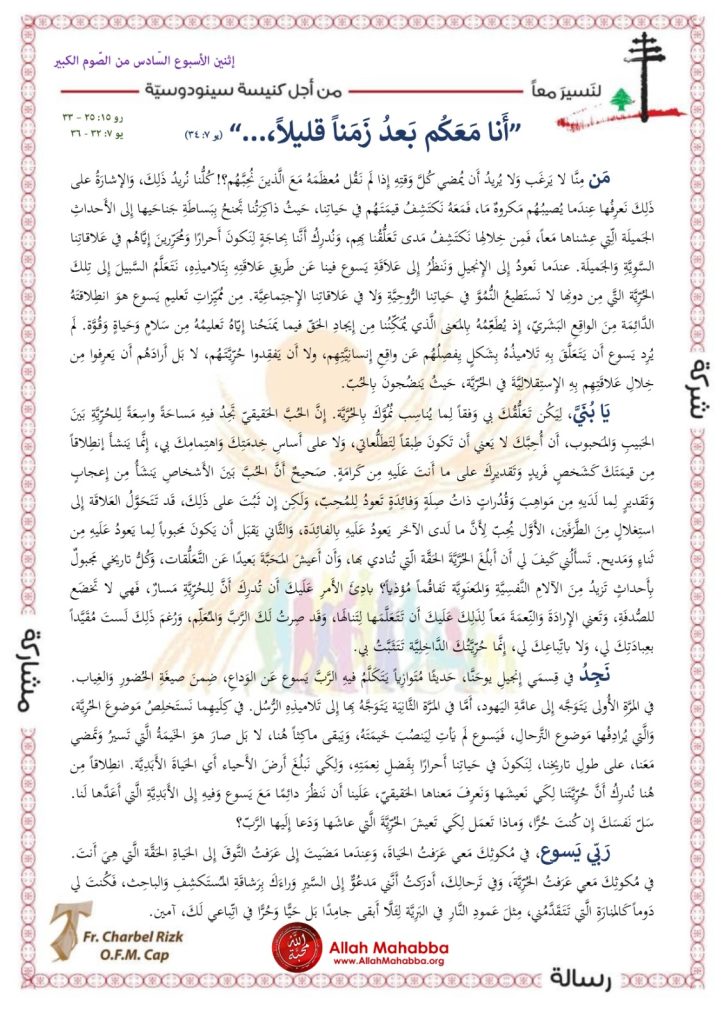 إثنين الأسبوع السّادس من الصّوم الكبير
لنَسيرَ معاً
من أجل كنيسة سينودوسيّة
رو ١٥: ٢٥ - ٣٣
يو ٧: ٣٢ - ٣٦
”أَنا مَعَكُم بَعدُ زَمَناً قليلاً،...“ (يو ٧: ٣٤)
مَن مِنَّا لا يَرغَب وَلا يُريدُ أَن يُمضي كُلَّ وَقتِهِ إِذا لَم نَقُل مُعظَمَهُ مَعَ الَّذينَ نُحِبُّهُم؟! كُلُّنا نُريدُ ذَلِكَ، وَالإشارَةُ على
ذَلِكَ نَعرِفُها عِندَما يُصيبُهُم مَكروهٌ مَا، فَمَعَهُ نَكتَشِفُ قيمَتَهُم في حَياتِنا، حَيثُ ذاكِرَتُنا تَجنَحُ بِبَساطَةِ جَناحَيها إِلى الأَحداثِ
الجَميلَة الَّتِي عِشناها مَعاً، فَمِن خِلالِها نَكتَشِفُ مَدى تَعَلُّقُنا بِهِم، وَنُدرِكُ أَنَّنا بِحاجَةٍ لِنَكونَ أَحرارًا وَمُحَرِّرينَ إِيَّاهُم في عَلاقاتِنا
السَّوِيَّةِ وَالجَميلَة. عندَما نَعودُ إِلى الإِنجيلِ وَنَنظُرُ إِلى عَلاقَةِ يَسوع فينا عَن طَريقِ عَلاقَتِهِ بِتَلاميذِهِ، نَتَعَلَّمُ السَّبيلَ إِلى تِلكَ
الحُرِّيَّة الَّتي مِن دونِها لا نَستَطيعُ النُّمُوَّ في حَياتِنا الرُّوحِيَّةِ وَلا في عَلاقاتِنا الإِجتِماعِيَّة. مِن مُمَيِّزاتِ تَعليمِ يَسوع هوَ انطِلاقَتَهُ
الدَّائِمَة مِنَ الواقِعِ البَشَرِيّ، إِذ يُطَعِّمُهُ بِالمَعنَى الَّذي يُمَكِّنُنا مِن إيجادِ الحَقّ فيما يَمنَحُنا إِيَّاهُ تَعليمُهُ مِن سَلامٍ وَحَياةٍ وَقُوَّة. لَم
يُرِد يَسوع أَن يَتَعَلَّقَ بِهِ تَلاميذُهُ بِشَكلٍ يَفصِلُهُم عَن واقِعِ إِنسانِيَّتِهِم، وَلا أَن يَفقِدوا حُرِّيَّتَهُم، لا بَل أَرادَهُم أَن يَعرِفوا مِن
خِلالِ عَلاقَتِهِم بِهِ الإِستِقلالِيَّةَ في الحُرِّيَّة، حَيثُ يَنضُجونَ بِالحُبّ.
يَا بُنَيَّ، لِيَكُن تَعَلُّقُكَ بي وَفقاً لِما يُناسِب نُمُوَّكَ بِالحُرِّيَّة. إِنَّ الحُبَّ الحَقيقيّ تَجِدُ فيهِ مَساحَةً واسِعَةً لِلحُرِّيَّةِ بَينَ
الحَبيبِ وَالمَحبوب، أَن أُحِبَّكَ لا يَعني أَن تَكونَ طِبقًا لِتَطَلُّعاتي، وَلا على أَساسِ خِدمَتِكَ وَاهتِمامِكَ بي، إِنَّما يَنشأُ إِنطِلاقاً
مِن قيمَتِكَ كَشَخصٍ فَريدٍ وَتَقديرِكَ على ما أَنتَ عَلَيهِ مِن كَرامَةٍ. صَحيحٌ أَنَّ الحُبَّ بَينَ الأَشخاصِ يَنشَأُ مِن إِعجابٍ
وَتَقديرٍ لِما لَدَيهِ مِن مَواهِبَ وَقُدُراتٍ ذاتُ صِلَةٍ وَفائِدَةٍ تَعودُ لِلمُحِبّ، وَلَكِن إِن ثَبُتَ على ذَلِكَ، قَد تَتَحَوَّلُ العَلاقَة إِلى
استِغلالٍ مِنَ الطَّرَفَين، الأَوَّلُ يُحِبّ لِأَنَّ ما لَدى الآخَر يَعودُ عَلَيهِ بِالفائِدَة، وَالثَّاني يَقبَل أَن يَكونَ مَحبوباً لِما يَعودُ عَلَيهِ مِن
ثَناءٍ وَمَديح. تَسأَلُني كَيفَ لي أَن أَبلُغَ الحُرِّيَّةَ الحَقَّة الَّتي تُنادي بِها، وَأَن أَعيشَ المَحَبَّةَ بَعيدًا عَن التَّعَلُّقات، وَكُلُّ تاريخي مَجبولٌ
بِأَحداثٍ تَزيدُ مِنَ الآلامِ النَّفسِيَّةِ وَالمَعنَوِيَّة تَفاقُماً مُؤذِياً؟ بادِئَ الأَمرِ عَلَيكَ أَن تُدرِكَ أَنَّ لِلحُرِّيَّةِ مَسارٌ، فَهِي لا تَخضَع
لِلصُّدفَةِ، وَتَعني الإِرادَةَ وَالنِّعمَةَ مَعاً لِذَلِكَ عَلَيكَ أَن تَتَعَلَّمَها لِتَنالَها، وَقَد صِرتُ لَكَ الرَّبَّ وَالمُعَلِّم، وَرُغمَ ذَلِكَ لَستَ مُقَيَّداً
بِعِبادَتِكَ لي، وَلا بِاتِّباعِكَ لي، إِنَّما حُرِّيَّتُكَ الدَّاخِلِيَّة تَتَثَبَّتُ بي.
نَجِدُ في قِسمَي إِنجيلِ يوحَنَّا، حَديثًا مُتَوازِياً يَتَكَلَّمُ فيهِ الرَّبُّ يَسوع عَن الوَداعِ، ضِمنَ صيغَةِ الحُضورِ وَالغِياب.
في المَرَّةِ الأُولى يَتَوَجَّه إِلى عامَّةِ اليَهود، أَمَّا في المَرَّة الثَّانِيَة يَتَوَجَّهُ بِها إِلى تَلاميذِهِ الرُّسُل. في كِلَيهِما نَستَخلِصُ مَوضوعَ الحُرِّيَّة،
وَالَّتي يُرادِفُها مَوضوع التَّرحال، فَيَسوع لَم يَأتِ لِيَنصُبَ خَيمَتَهُ، وَيَبقى ماكِثاً هُنا، لا بَل صارَ هوَ الخَيمَةُ الَّتي تَسيرُ وَتَمضي
مَعَنا، على طولِ تاريخِنا، لِنَكونَ في حَياتِنا أَحرارًا بِفَضلِ نِعمَتِهِ، وَلِكَي نَبلُغَ أَرضَ الأَحياء أَي الحَياةَ الأَبَدِيَّة. انطِلاقاً مِن
هُنا نُدرِكُ أَنَّ حُرِّيَّتَنا لِكَي نَعيشَها وَنَعرِفَ مَعناها الحَقيقيّ، عَلَينا أَن نَنظُرَ دائِمًا مَعَ يَسوعَ وَفيهِ إِلى الأَبَدِيَّةِ الَّتي أَعَدَّها لَنا.
سَلّ نَفسَكَ إِن كُنتَ حُرًّا، وَماذا تَعمَل لِكَي تَعيشَ الحُرِّيَّةَ الَّتي عاشَها وَدَعا إِلَيها الرَّبّ؟
رَبِّي يَسوع، في مُكوثِكَ مَعي عَرَفتُ الحَياةَ، وَعِندَما مَضَيتَ إِلى عَرَفتُ التَّوقَ إِلى الحَياةِ الحَقَّة الَّتي هِيَ أَنتَ.
في مُكوثِكَ مَعي عَرَفتُ الحُرِّيَّةَ، وَفي تَرحالِكَ، أَدرَكتُ أَنَّني مَدعُوٌّ إِلى السَّيرِ وَراءَكَ بِرَشاقَةِ المُستَكشِفِ وَالباحِث، فَكُنتَ لي
دَوماً كَالمَنارَةِ الَّتي تَتَقَدَّمُني، مِثلَ عَمودِ النَّارِ في البَرِّيَة لِئَلَّا أَبقى جامِدًا بَل حَيًّا وَحُرًّا في اتِّباعي لَكَ، آمين.
شركة
مشاركة
رسالة
Fr. Charbel Rizk
O.F.M. Cap
الله محبة
Allah Mahabba
www.AllahMahabba.org